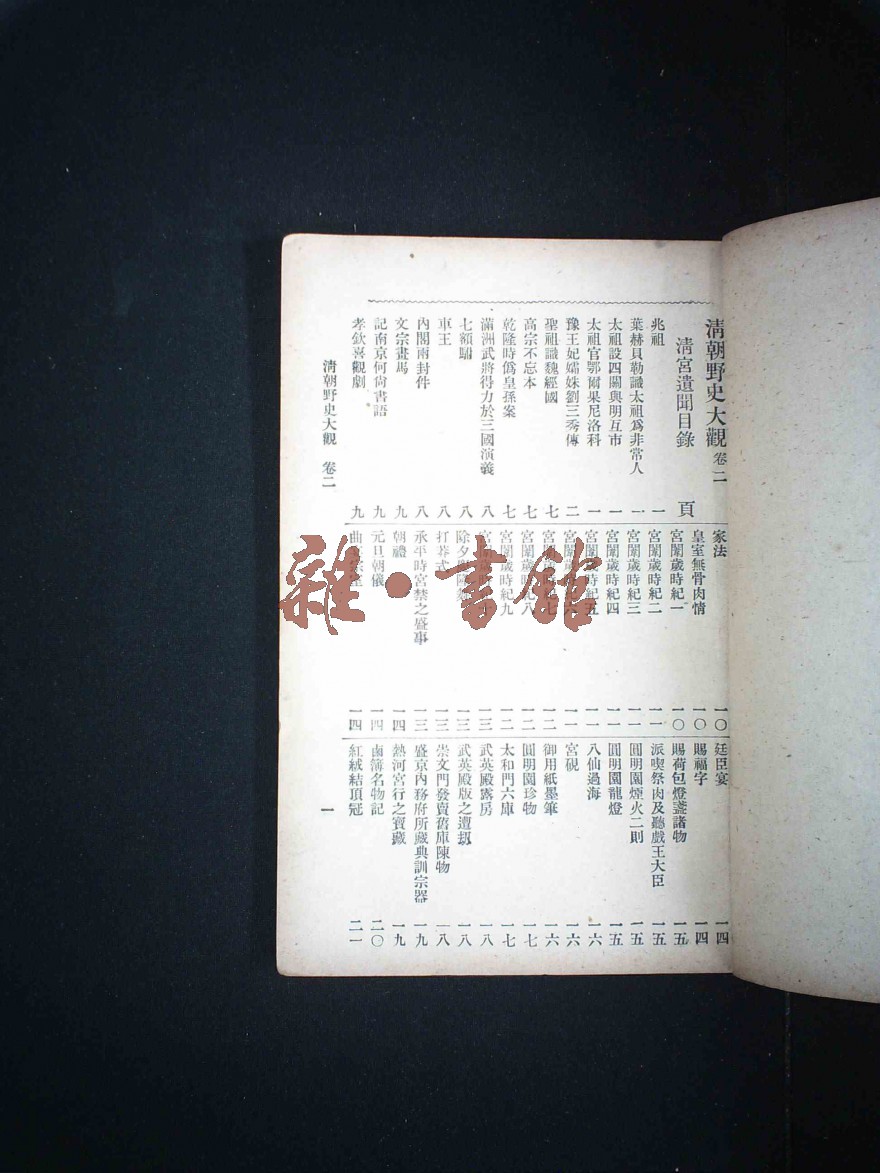 清朝野史大觀 卷二
清宮遺聞目錄 頁
兆祖 一
葉赫貝勒識太祖爲非常人 一
太祖設四關與明互市 一
太祖官鄂爾果尼洛科 一
豫王妃孀姝劉三秀傳 二
聖祖識魏經國 七
高宗不忘本 七
乾隆時僞皇孫案 七
滿洲武將得力於三國演義 八
七額駙 八
車王 八
內閣兩封件 八
文宗畫馬 九
記南京何尙書語 九
孝欽喜觀劇 九
家法 一〇
皇室無骨肉情 一〇
宮闈歲時紀一 一〇
宮闈歲時紀二 一一
宮闈歲時紀三 一一
宮闈歲時紀四 一一
宮闈歲時紀五 一一
宮闈歲時紀六 一一
宮闈歲時紀七 一二
宮闈歲時紀八 一二
宮闈歲時紀九 一二
宮闈歲時紀十 一三
除夕 一三
打莽式 一三
承平時宮禁之盛事 一三
朝禮 一四
元旦朝儀 一四
曲宴宗室 一四
廷臣宴 一四
賜福字 一四
賜荷包燈盞諸物 一五
派喫祭肉及聽戲王大臣 一五
圓明園煙火二則 一五
圓明園龍燈 一五
八仙過海 一六
宮硯 一六
御用紙墨筆 一六
圓明園珍物 一七
太和門六庫 一七
武英殿露房 一八
武英殿版之遭刼 一八
崇文門發賣舊庫陳物 一八
盛京內務府所藏典訓宗器 一九
熱河宮行之寶藏 一九
鹵簿名物記 二〇
紅絨結頂冠 二一
清朝野史大觀 卷二 一
雜·書館